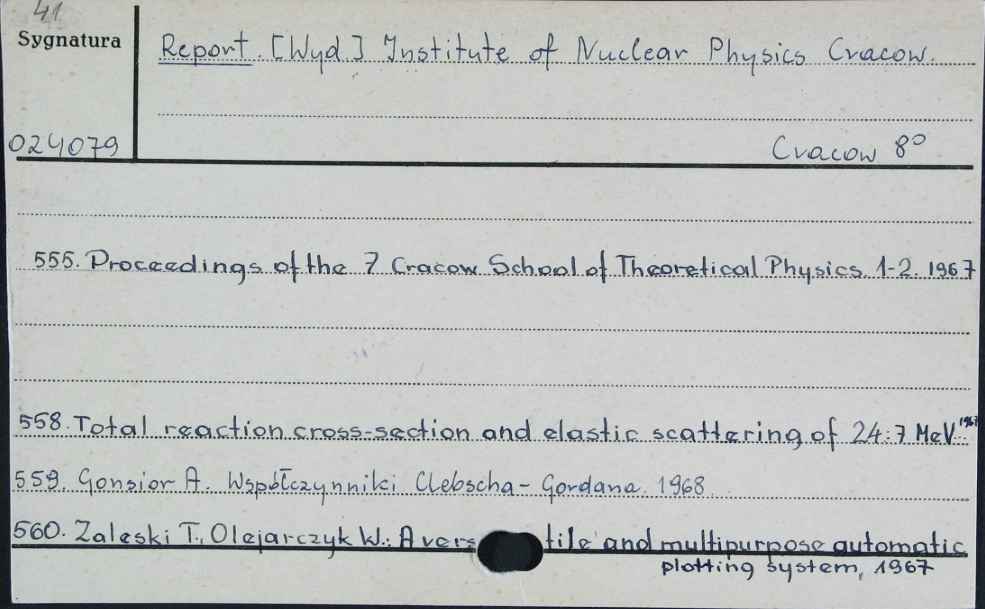 41
Sygnatura
Report. [Wyd.] Institute of Nuclear Physics Cracow.
024079
Cracow 8°
555. Proceedings of the 7 Cracow School of Theoretical Physics 1-2. 1967
558. Total reaction cross-section and elastic scattering of 24.7 MeV. 1967
559. Gonsior A. Współczynniki Clebscha-Gordana. 1968
560. Zaleski T., Olejarczyk W.: A vers tile and multipurpose automatic
plotting system, 1967